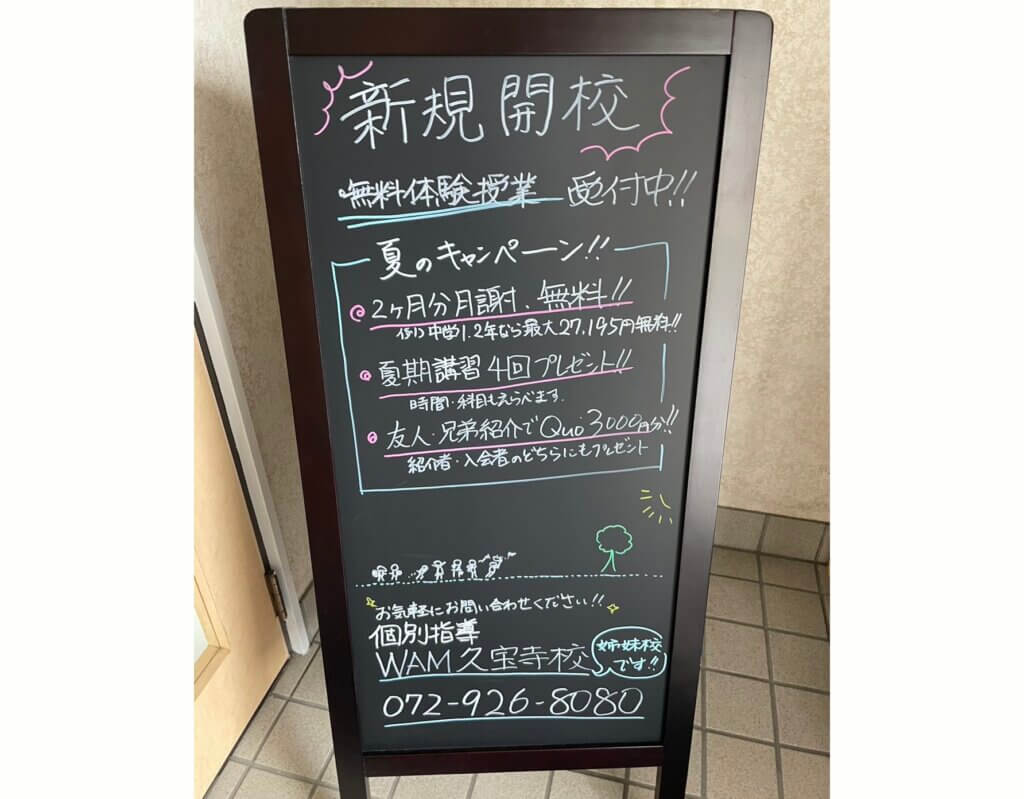 新規開校
無料体験授業 受付中!!
夏のキャンペーン!!
2ヶ月分月謝付、無料!!
例) 中学1.2年なら最大27,195円無料!!
夏期講習4回プレゼント!!
時間・科目もえらべます.
友人・兄弟紹介でQuo 3000円分!!
紹介者・入会者のどちらにもプレゼント
お気軽にお問い合わせください!!
個別指導
WAM久宝寺校
姉妹校
です!!
072-926-8080